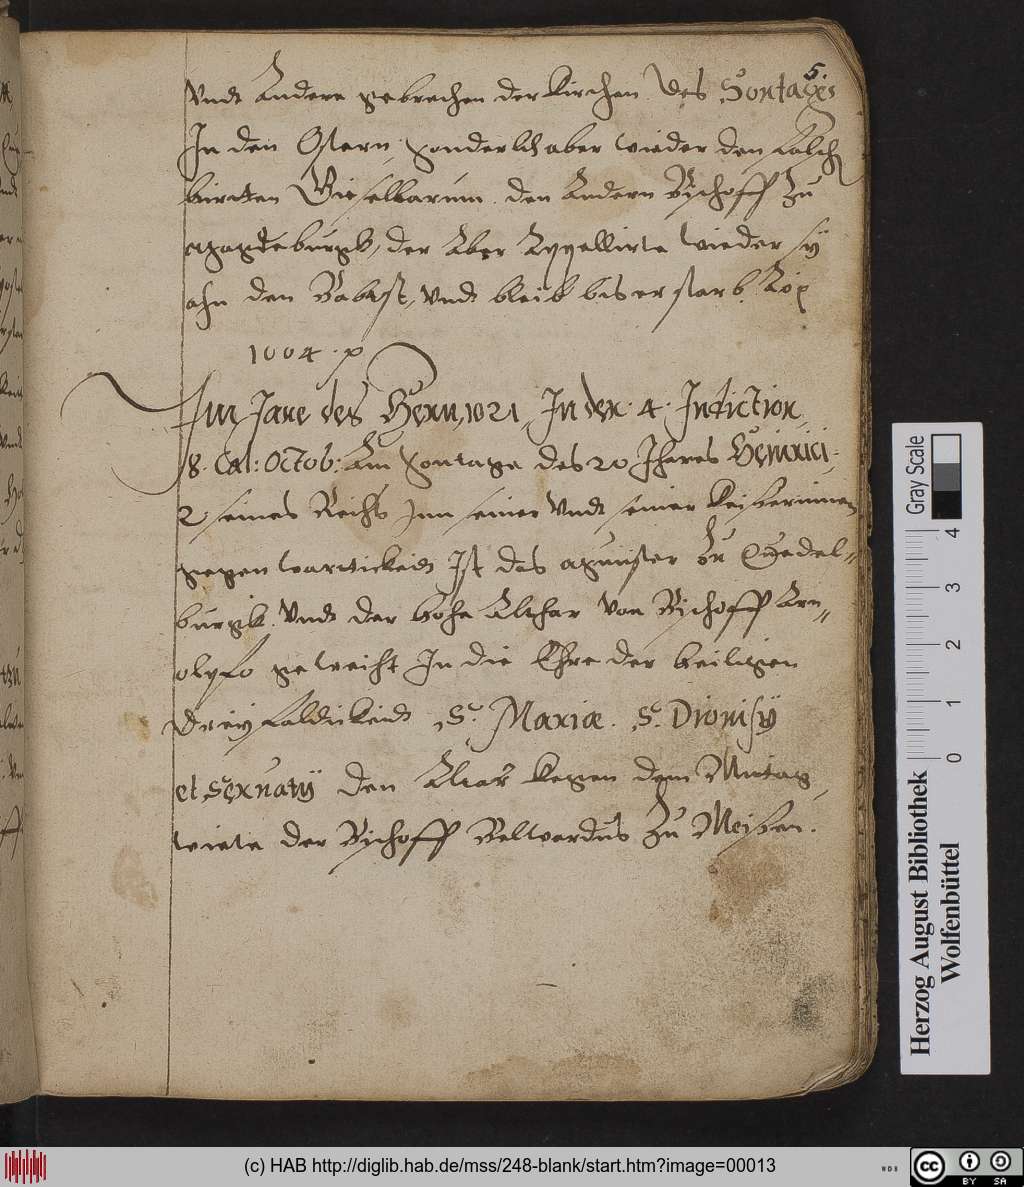 5.
Vndt Andere gebrechen der Kirchen. des Sontages
In den Ostern, sonderlich aber wieder den falch
burtten Gieselbarum. den Andern Bischoff Zu
Magdeburgk, der Aber Appellirte wieder sy
ahn den Babst, Vndt bleib bis er starb.
1004.
Im Jare des Herrn, 1021, In der. 4. Indiction,
8. Cal: Octob: Am Sontage des 20 Jhares Heinrici
2 seines Reichs Inn seiner Vndt seiner Keiserinnen
gegenwarttickeidt Ist das Munster Zu Quedel-
burgk. Vndt der hohe Althar von Bischoff Arn-
olpfo geweiht In die Ehre der heiligen
Dreyfaldickeidt S. Mariæ. S. Dionisÿ
et Seruatÿ den Altar kegen dem Mittag,
wiete der Bischoff Velwardus Zu Meißen.
Herzog August Bibliothek
Wolfenbüttel
Gray Scale
0 1 2 3 4
(c) HAB http://diglib.hab.de/mss/248-blank/start.htm?image=00013
WDB
cc BY SA